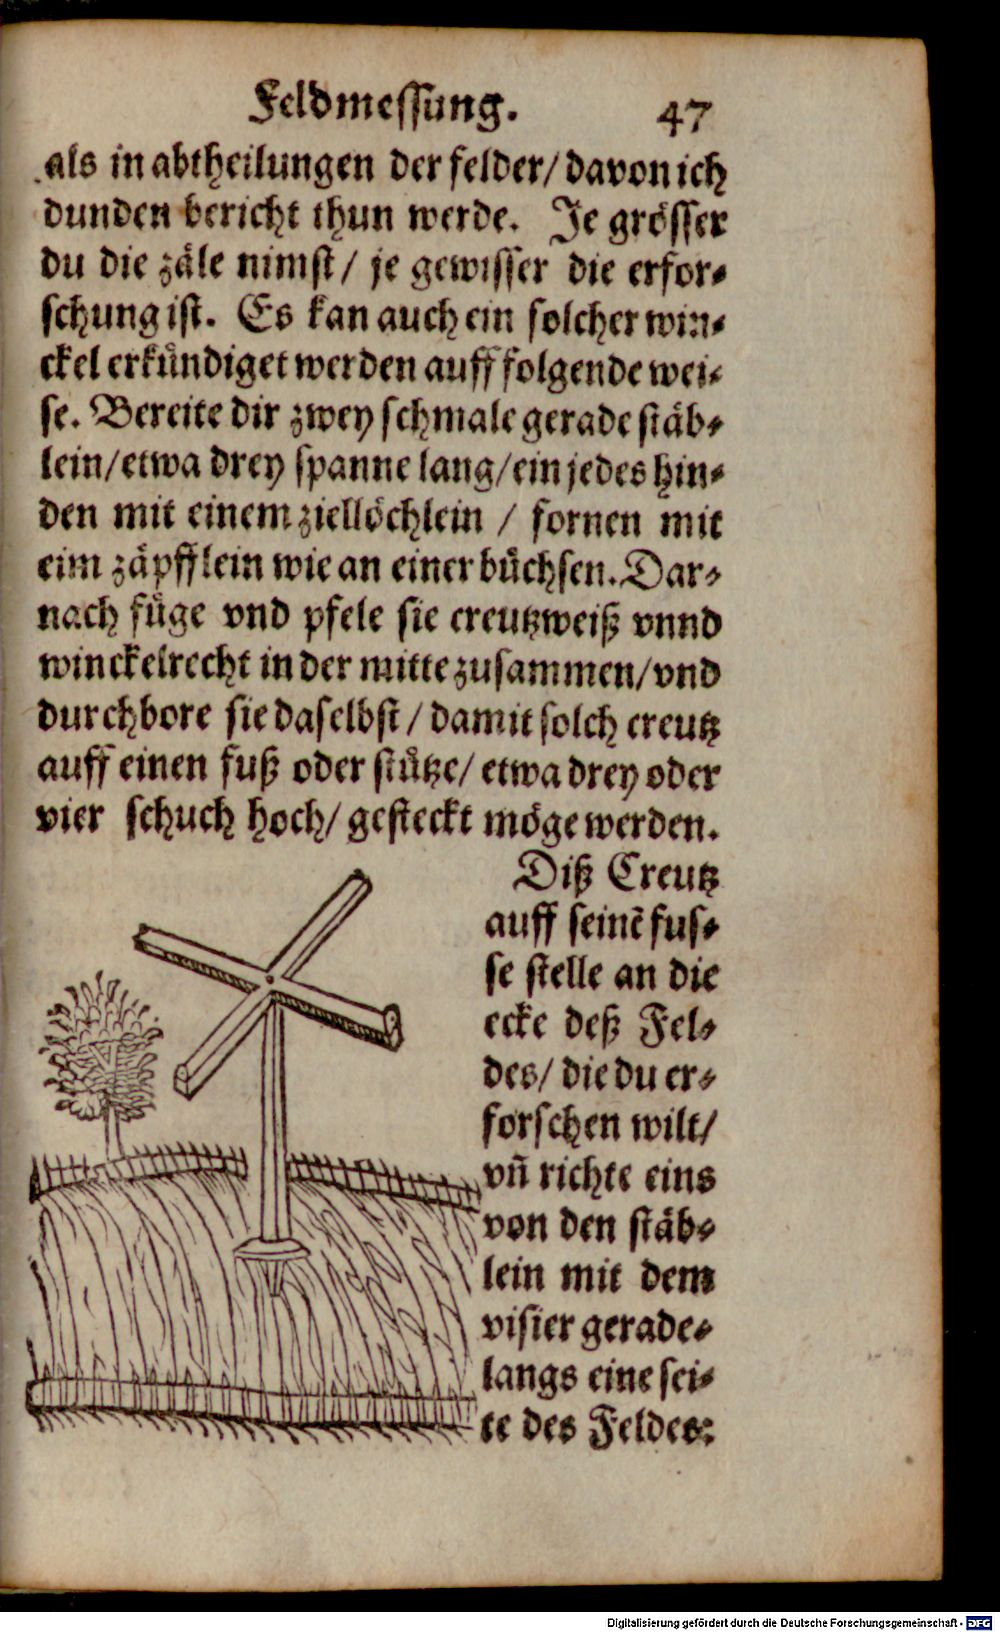 Feldmessung. 47
als in abtheilungen der felder/ davon ich
dunden bericht thun werde. Je grösser
du die zäle nimst/ je gewisser die erfor-
schung ist. Es kan auch ein solcher win-
ckel erkündiget werden auff folgende wei-
se. Bereite dir zwey schmale gerade stäb-
lein/ etwa drey spanne lang/ ein jedes hin-
den mit einem ziellöchlein / fornen mit
eim zäpfflein wie an einer büchsen. Dar-
nach füge vnd pfele sie creutzweiß vnnd
winckelrecht in der mitte zusammen/ vnd
durchbore sie daselbst / damit solch creutz
auff einen fuß oder stütze/ etwa drey oder
vier schuch hoch/ gesteckt möge werden.
Diß Creutz
auff seinẽ fus-
se stelle an die
ecke deß Fel-
des/ die du er-
forschen wilt/
vñ richte eins
von den stäb-
lein mit dem
visier gerade-
langs eine sei-
te des Feldes:
Digitalisierung gefördert durch die Deutsche Forschungsgemeinschaft - DFG